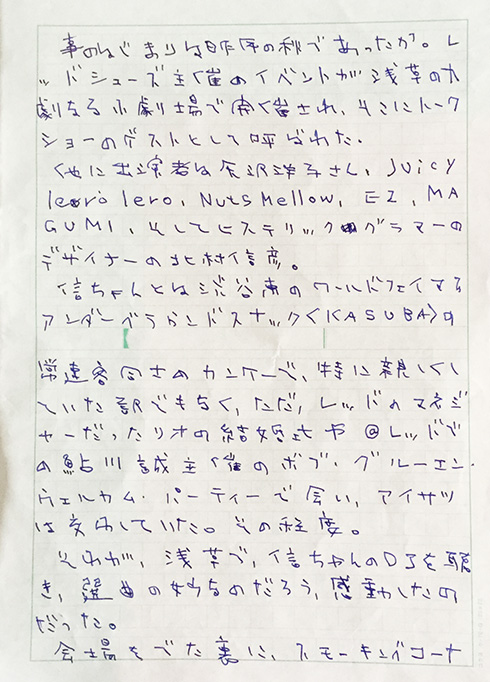 事のはじまりは昨年の秋であったか。レ
ッドシューズ主催のイベントが浅草の九
劇なる小劇場で開催され、そこにトーク
ショーのゲストとして呼ばれた。
他に出演者は金沢洋子さん、Juicy
lero lero, Nuts Mellow, EZ, MA
GUMI、そしてヒステリックグラマーの
デザイナーの北村信彦。
信ちゃんとは渋谷東のワールドフェイマス
アンダーグランドスナック〈KASUBA〉の
常連客同士のカンケーで、特に親しくし
ていた訳でもなく、ただ、レッドのマネジ
ャーだったリオの結婚式や@レッドで
の鮎川誠主催のボブ・グルーエン・
ウェルカム・パーティーで会い、アイサツ
は交わしていた。その程度。
それが、浅草で、信ちゃんのDJを聴
き、選曲の妙なのだろう、感動したの
だった。
会場をでた裏に、スモーキングコーナ